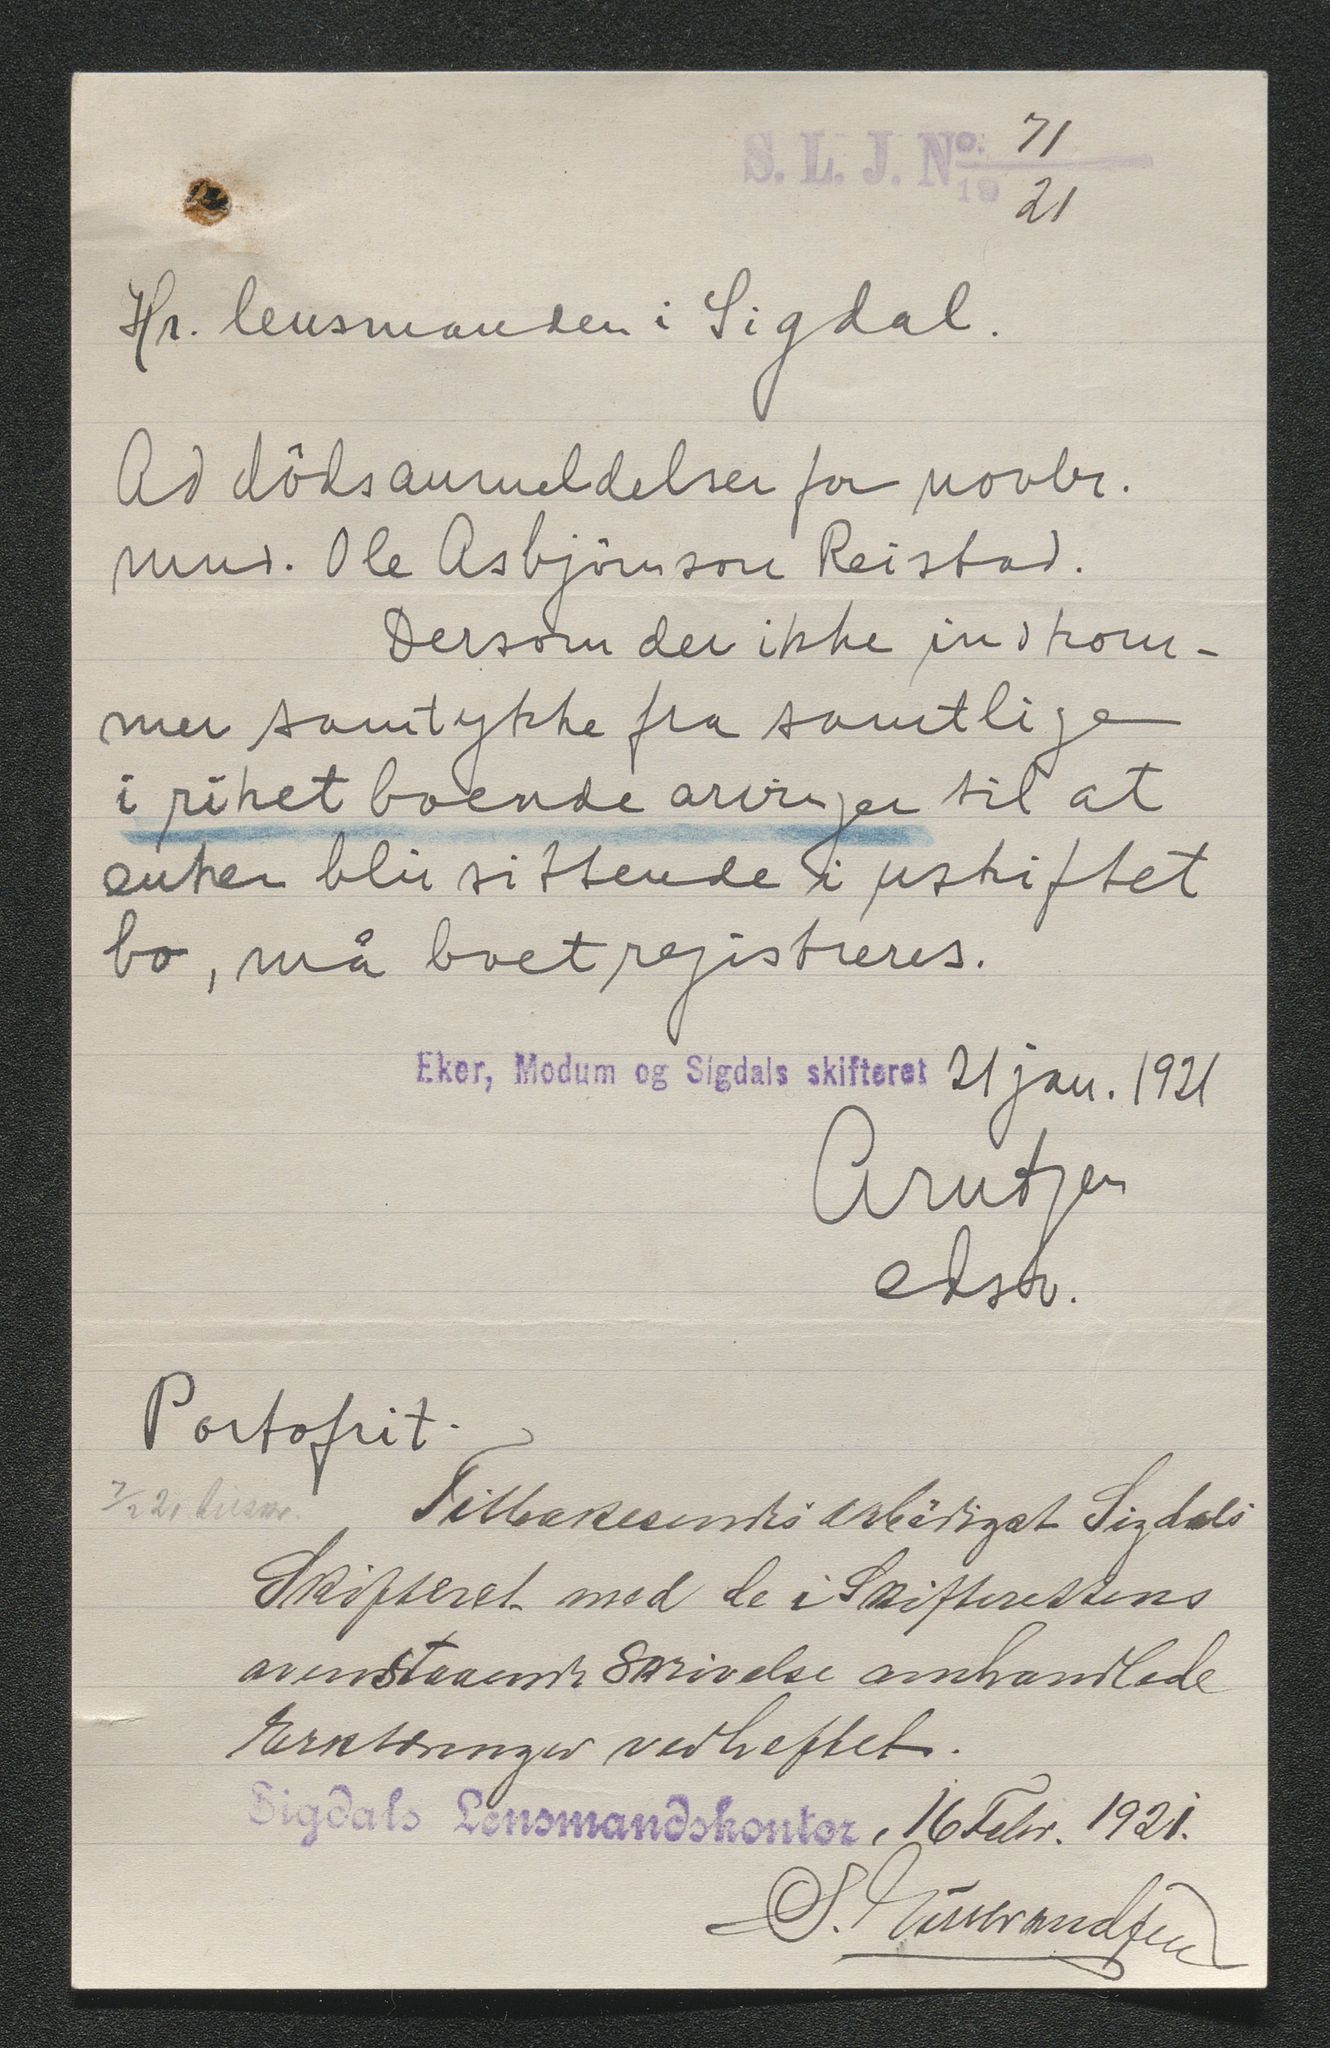 S. L. J. No. 71
19 21
Hr. lensmanden i Sigdal.
Ad dödsanmeldelser for novbr.
mnd. Ole Asbjörnson Reistad.
Dersom der ikke indkom-
mer samtykke fra samtlige
i riket boende arvinger til at
enken blir sittende i uskiftet
bo, må boet registreres.
Eker, Modum og Sigdals skifteret 21 jan. 1921
Arntzen
edsv.
Portofrit.
7/2 21
Tilbakesendes ærbödigst Sigdals
Skifteret med de i Skifterettens
ovenstaaende Skrivelse omhandlede
Erklæringer vedheftet.
Sigdals Lensmandskontor, 16 Febr. 1921.
S.